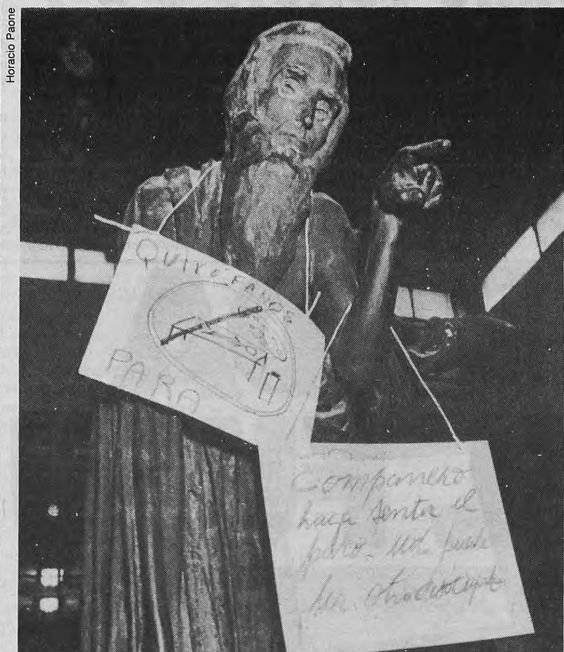 Horacio Paone
QUIROFANOS
PARA
Compañero
hace sentir el
paro. Ud puede
ser otro